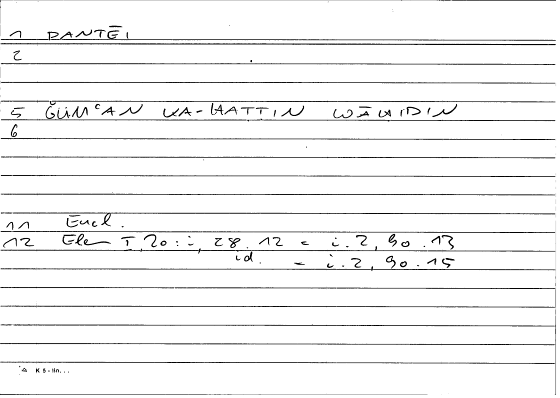 1 DANTĒI
2
5 ǦUMʿAN KA-ḪATTIN WĀḤIDIN
6
11 Eucl.
12 Elem I, 20 : i, 28.12 = i.2, 30.13
id. = i.2, 30.15